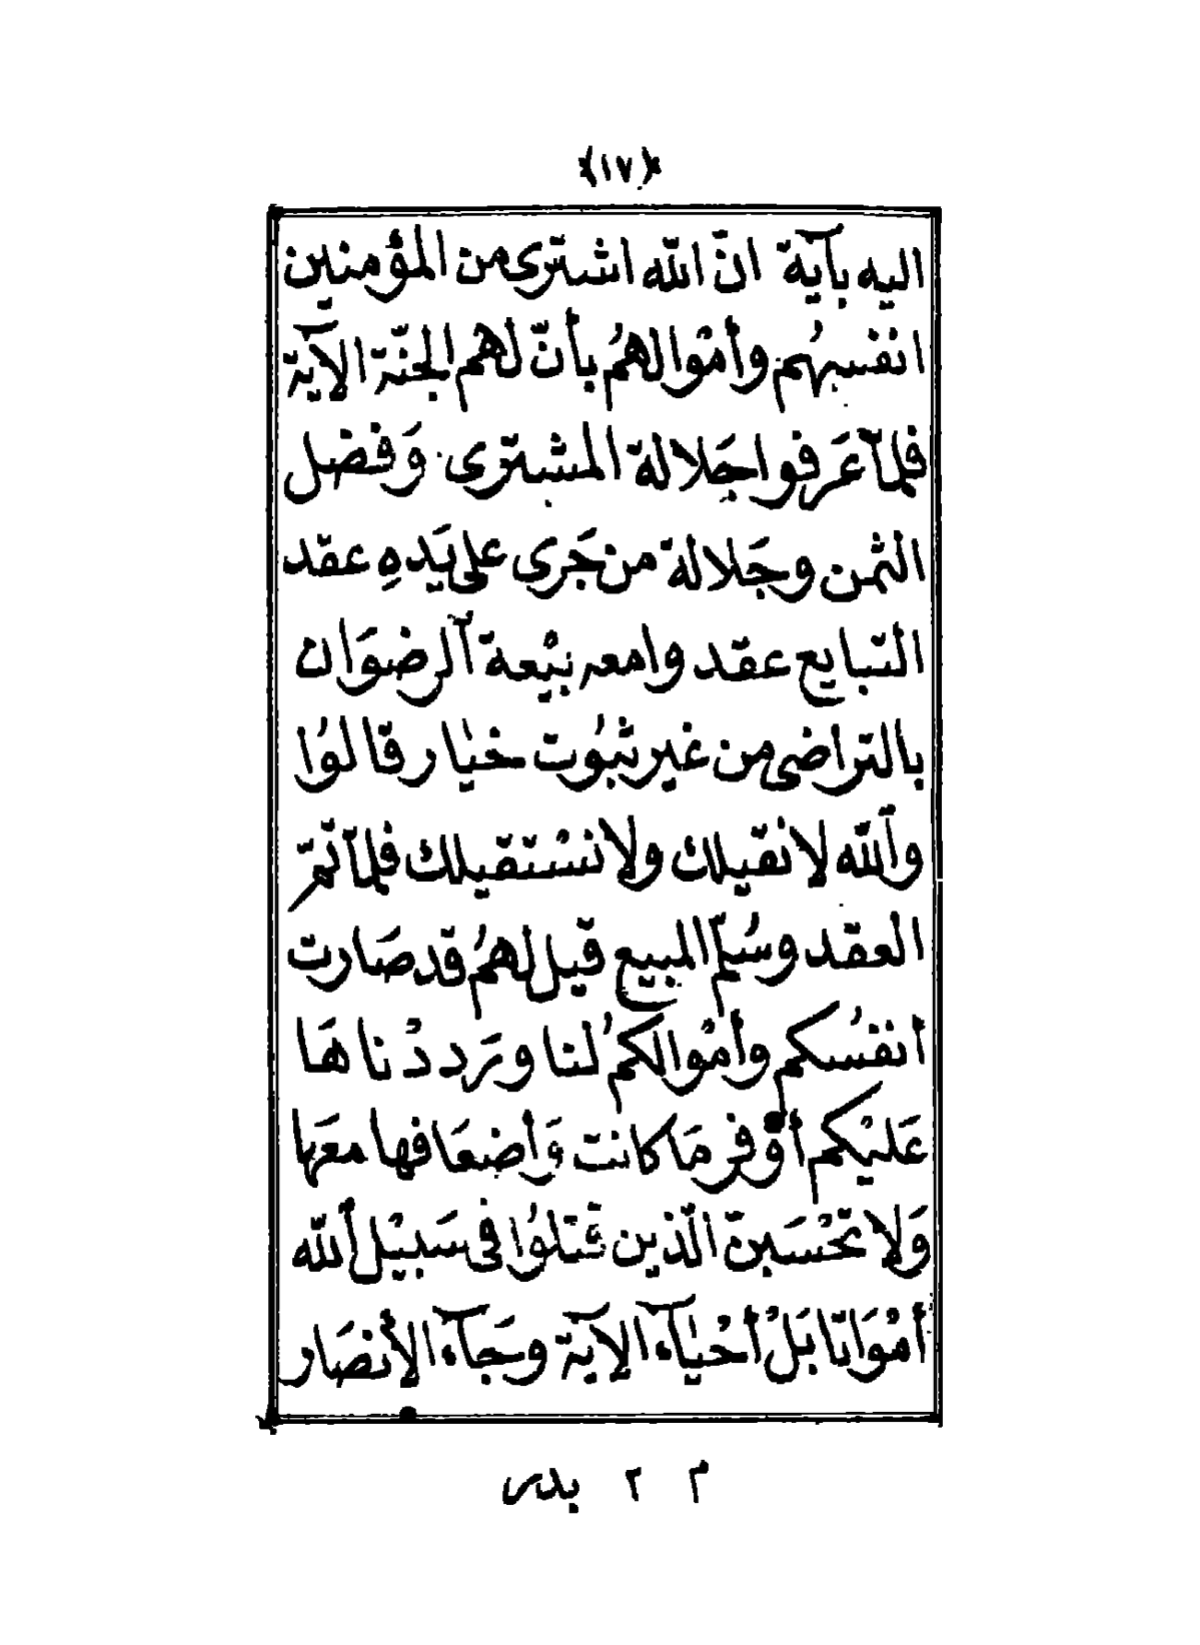 ﴿١٧﴾
اليه بآية انّ الله اشترى من المؤمنين
انفسهُم وأمْوالهمُ بأنّ لهم الجنّة الآية
فلمّا عَرفوا جَلالة المشترى وَفضل
الثمن وجَلالة من جَري على يَدهِ عقد
التبايع عقد وامعه بيْعة الرضوَان
بالتراضى من غير ثبُوت خيار قالوُا
والله لا نقيلك ولا نسْتقيلك فلمّا تمّ
العقد وسُلّم المبيع قيل لهمُ قد صَارت
أنفسُكم وأمْوالكمُ لنا ورَددْناهَا
عَليْكم أوْفر مَا كانت وَأضعَافها معَها
وَلا تحْسَبنّ الّذين قتلوُا فى سَبيْل الله
أمْوَاتا بَلْ أحْياء الآية وجَآء الأنصَار
م ٢ بدر